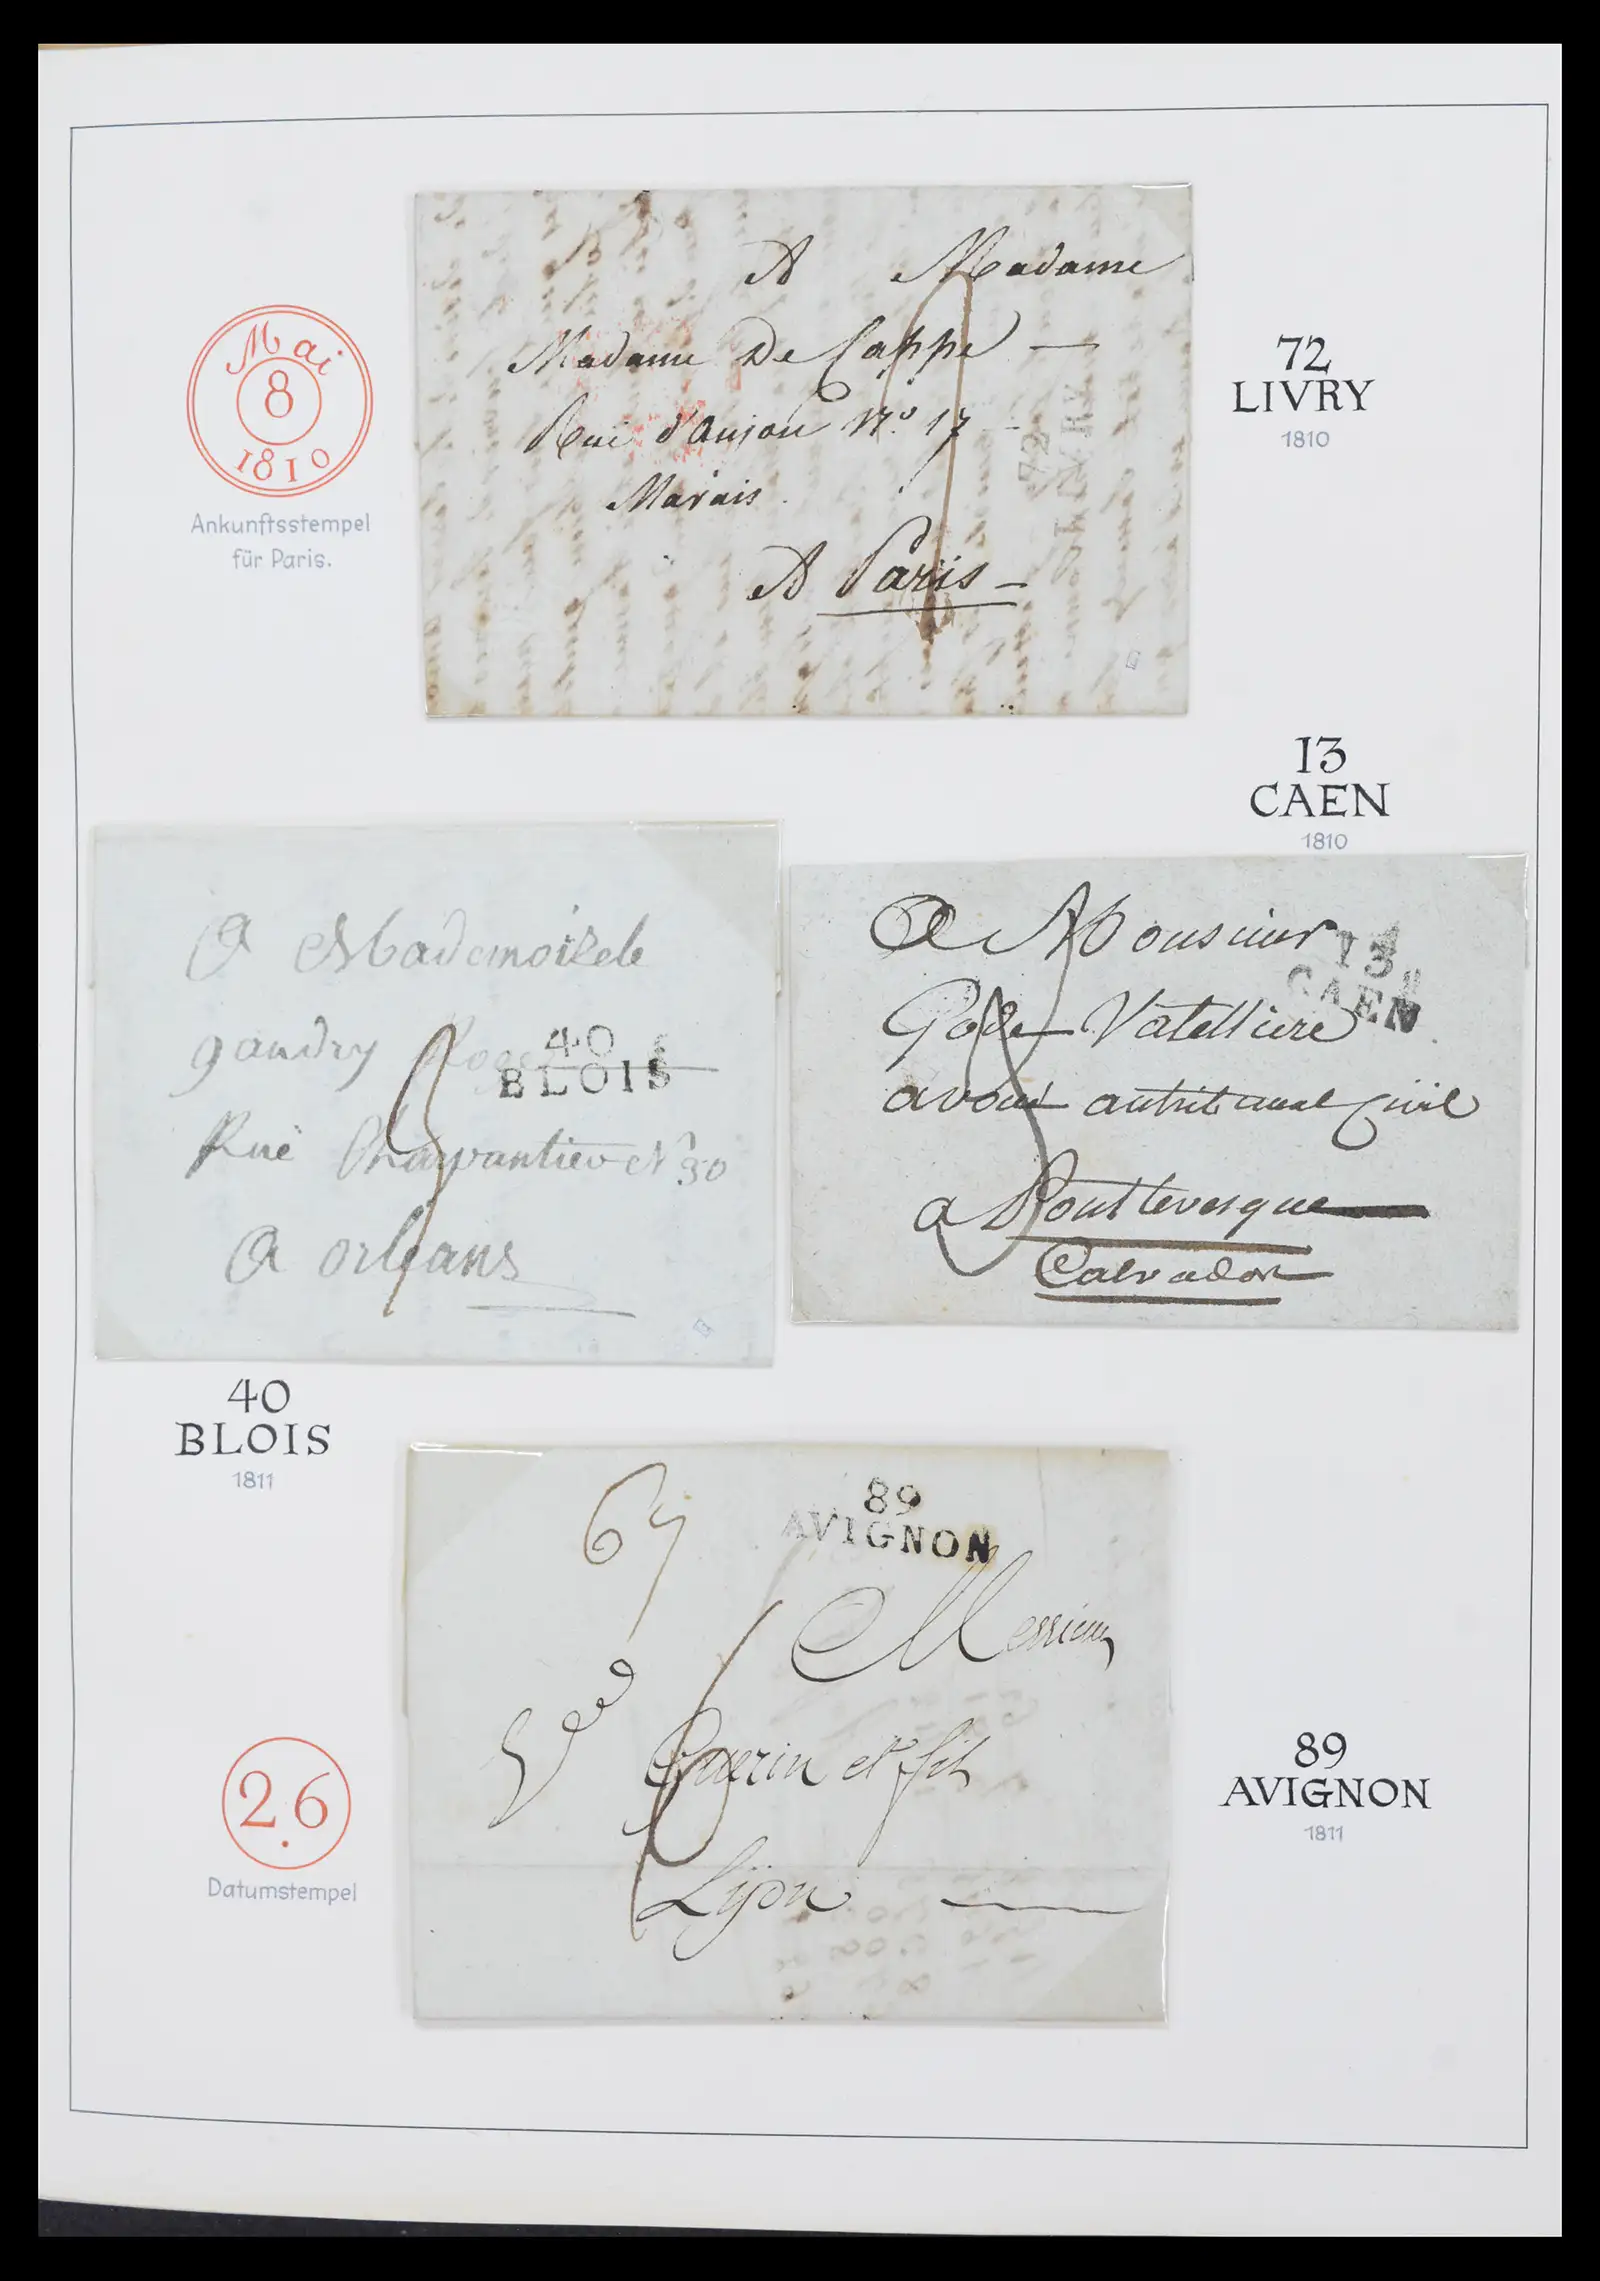 A Madame
Madame De Cappe
Rue d'Anjou N.o 17
Marais.
A Paris
72
LIVRY
Mai
8
1810
Ankunftsstempel
für Paris.
72
LIVRY
1810
13
CAEN
1810
A Mademoisele
gaudry
40
BLOIS
Rue Charpantier N° 30
A orleans
A Monsieur
13
CAEN
Gode Vatelliere
avoué autribunal Civil
a Pontlevesque
Calvados
40
BLOIS
1811
67
89
AVIGNON
Messieurs
Vve Guerin et fils
Lyon
2.6
Datumstempel
89
AVIGNON
1811